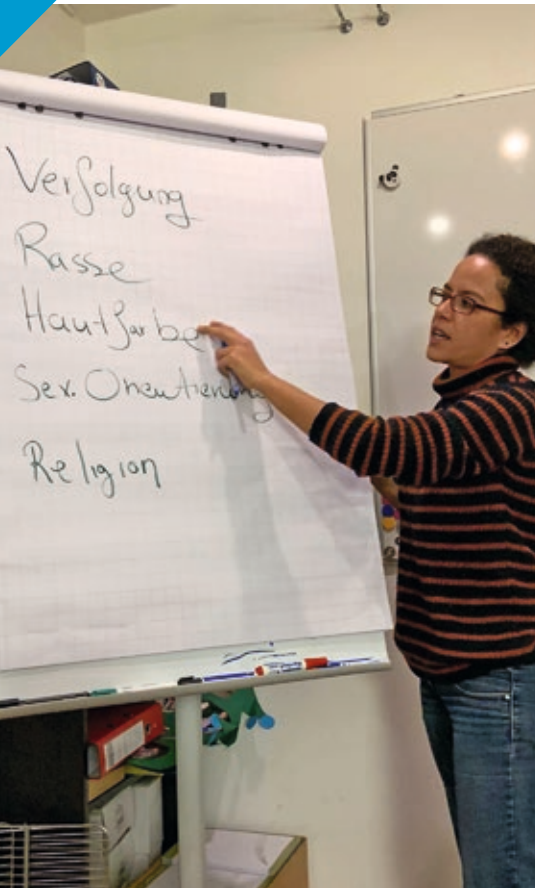 Verfolgung
Rasse
Hautfarbe
Sex. Orientierung
Religion